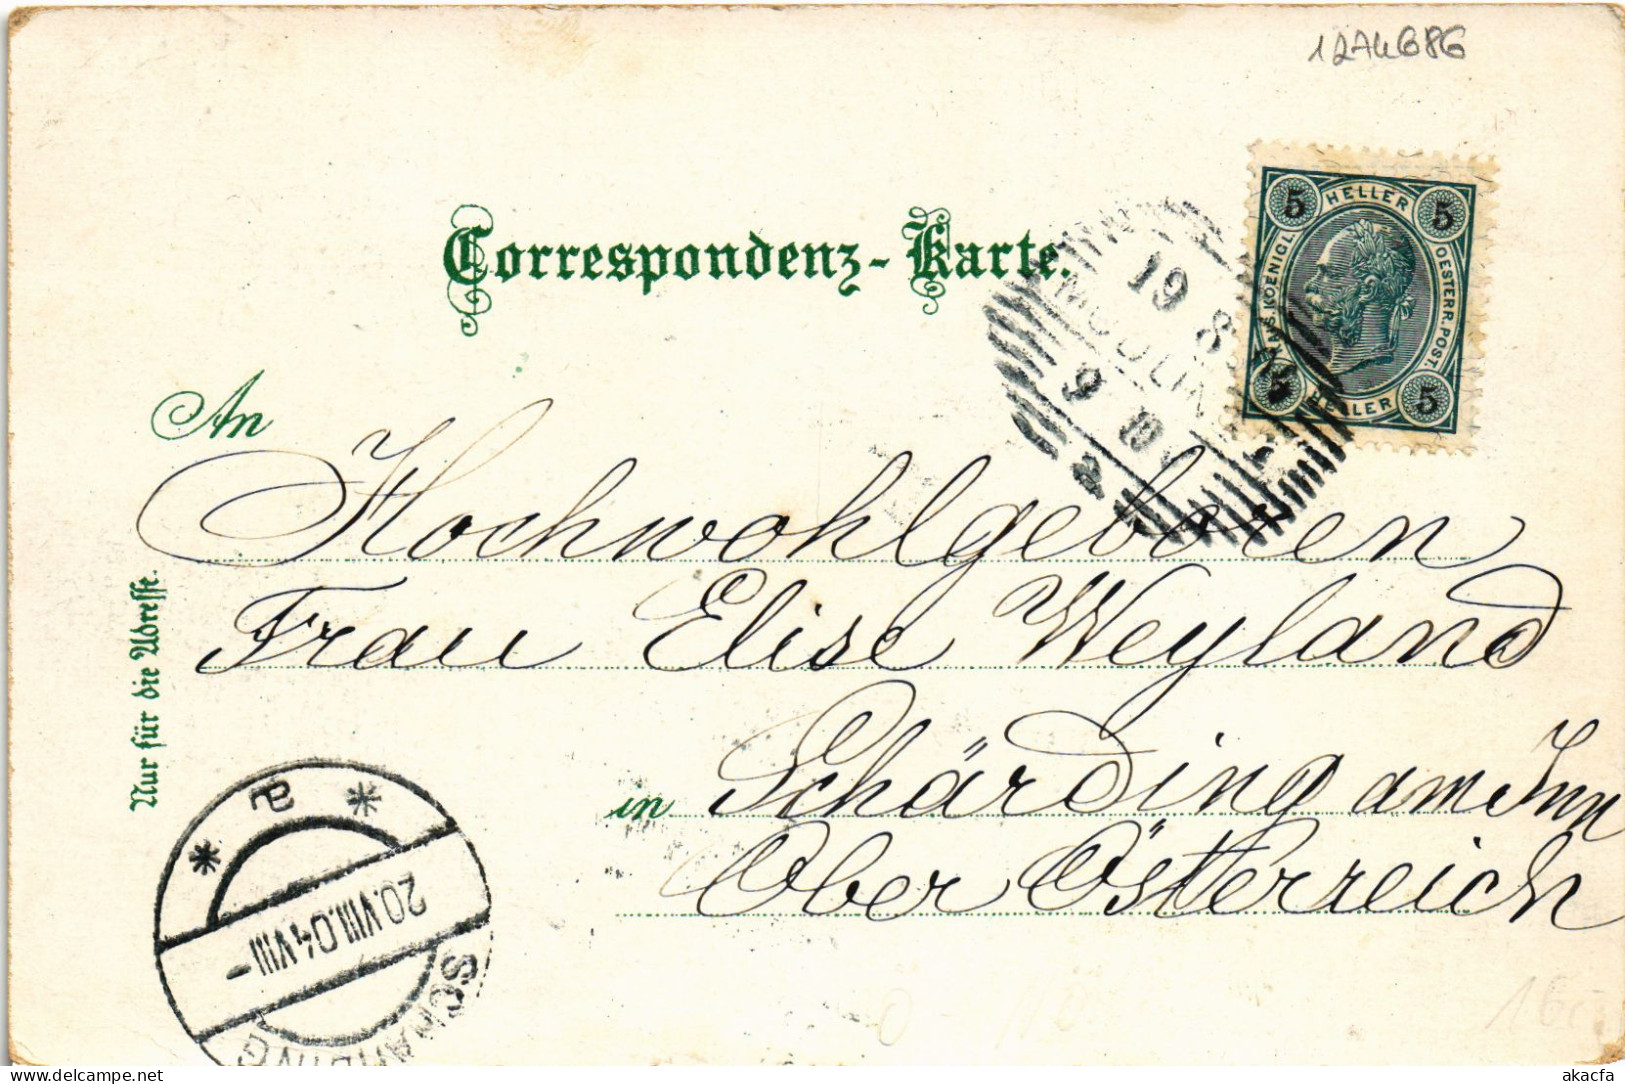 12AK686
Correspondenz-Karte.
HELLER
5 5
KAIS. KOENIGL. OESTERR. POST.
5 5
HELLER
19 8
MÖDLING
9
An
Hochwohlgeboren
Frau Elise Weyland
in Schärding am Inn
Ober Österreich
Nur für die Adresse.
* a *
20.VIII.04.VIII-
SCHÄRDING
delcampe.net
akacfa